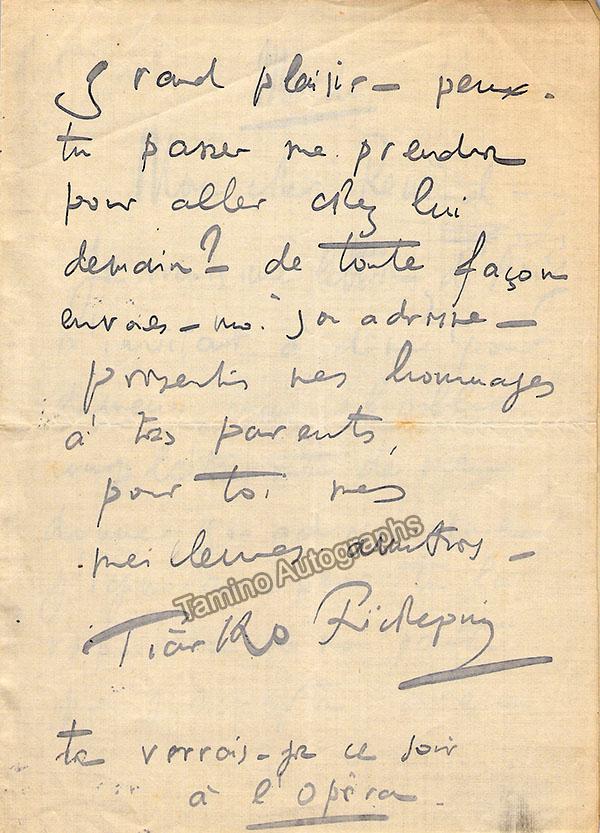 Grand plaisir — peux-
tu passer me prendre
pour aller chez lui
demain? — de toute façon
envoies-moi son adresse —
présentes mes hommages
à tes parents,
pour toi mes
meilleures amitiés —
Tiarko Richepin
te verrais-je ce soir
à l'Opéra.
Tamino Autographs